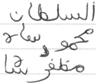 السلطان
محمود شاه
مظفر شا